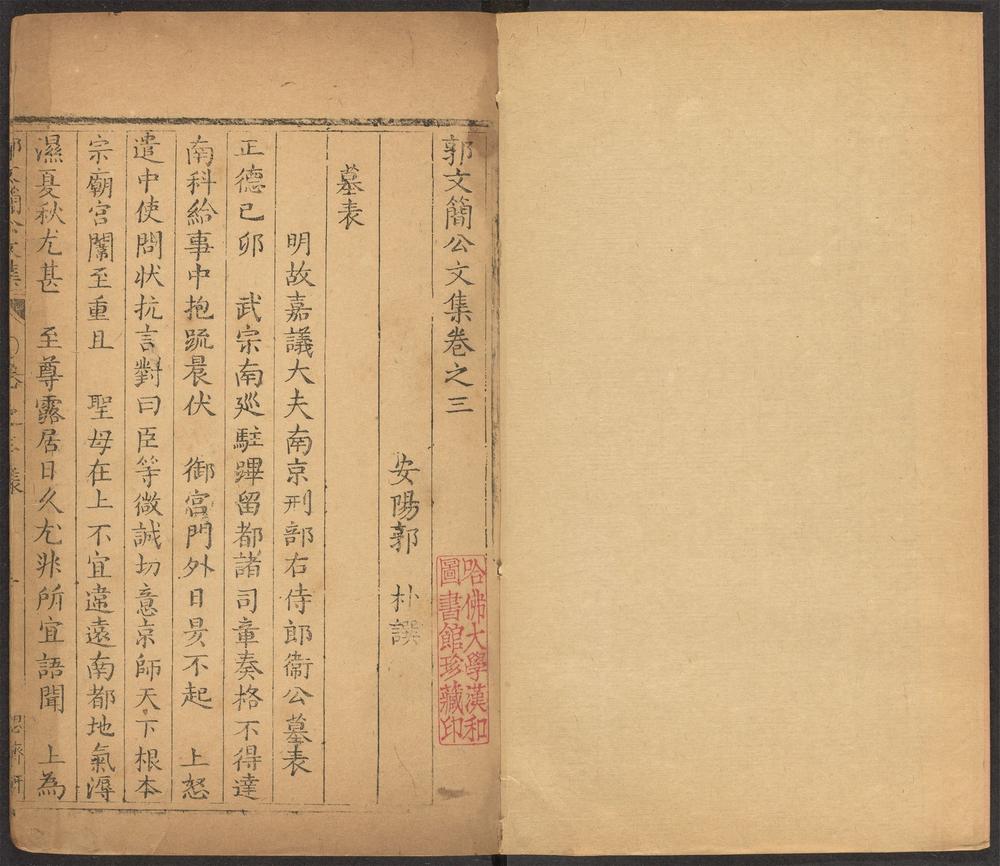 郭文簡公文集卷之三
安陽郭 朴 譔
墓表
明故嘉議大夫南京刑部右侍郎衞公墓表
正德己卯 武宗南廵駐蹕留都諸司章奏格不得達
南科給事中抱䟽晨伏 御宫門外日旲不起 上怒
遣中使問狀抗言對曰臣等微誠切意京師天下根本
宗廟宫闈至重且 聖母在上不宜違遠南都地氣溽
濕夏秋尤甚 至尊露居日久尤非所宜語聞 上為
郭文簡公文集
卷之三
思齊軒
哈佛大學漢和
圖書館珍藏印